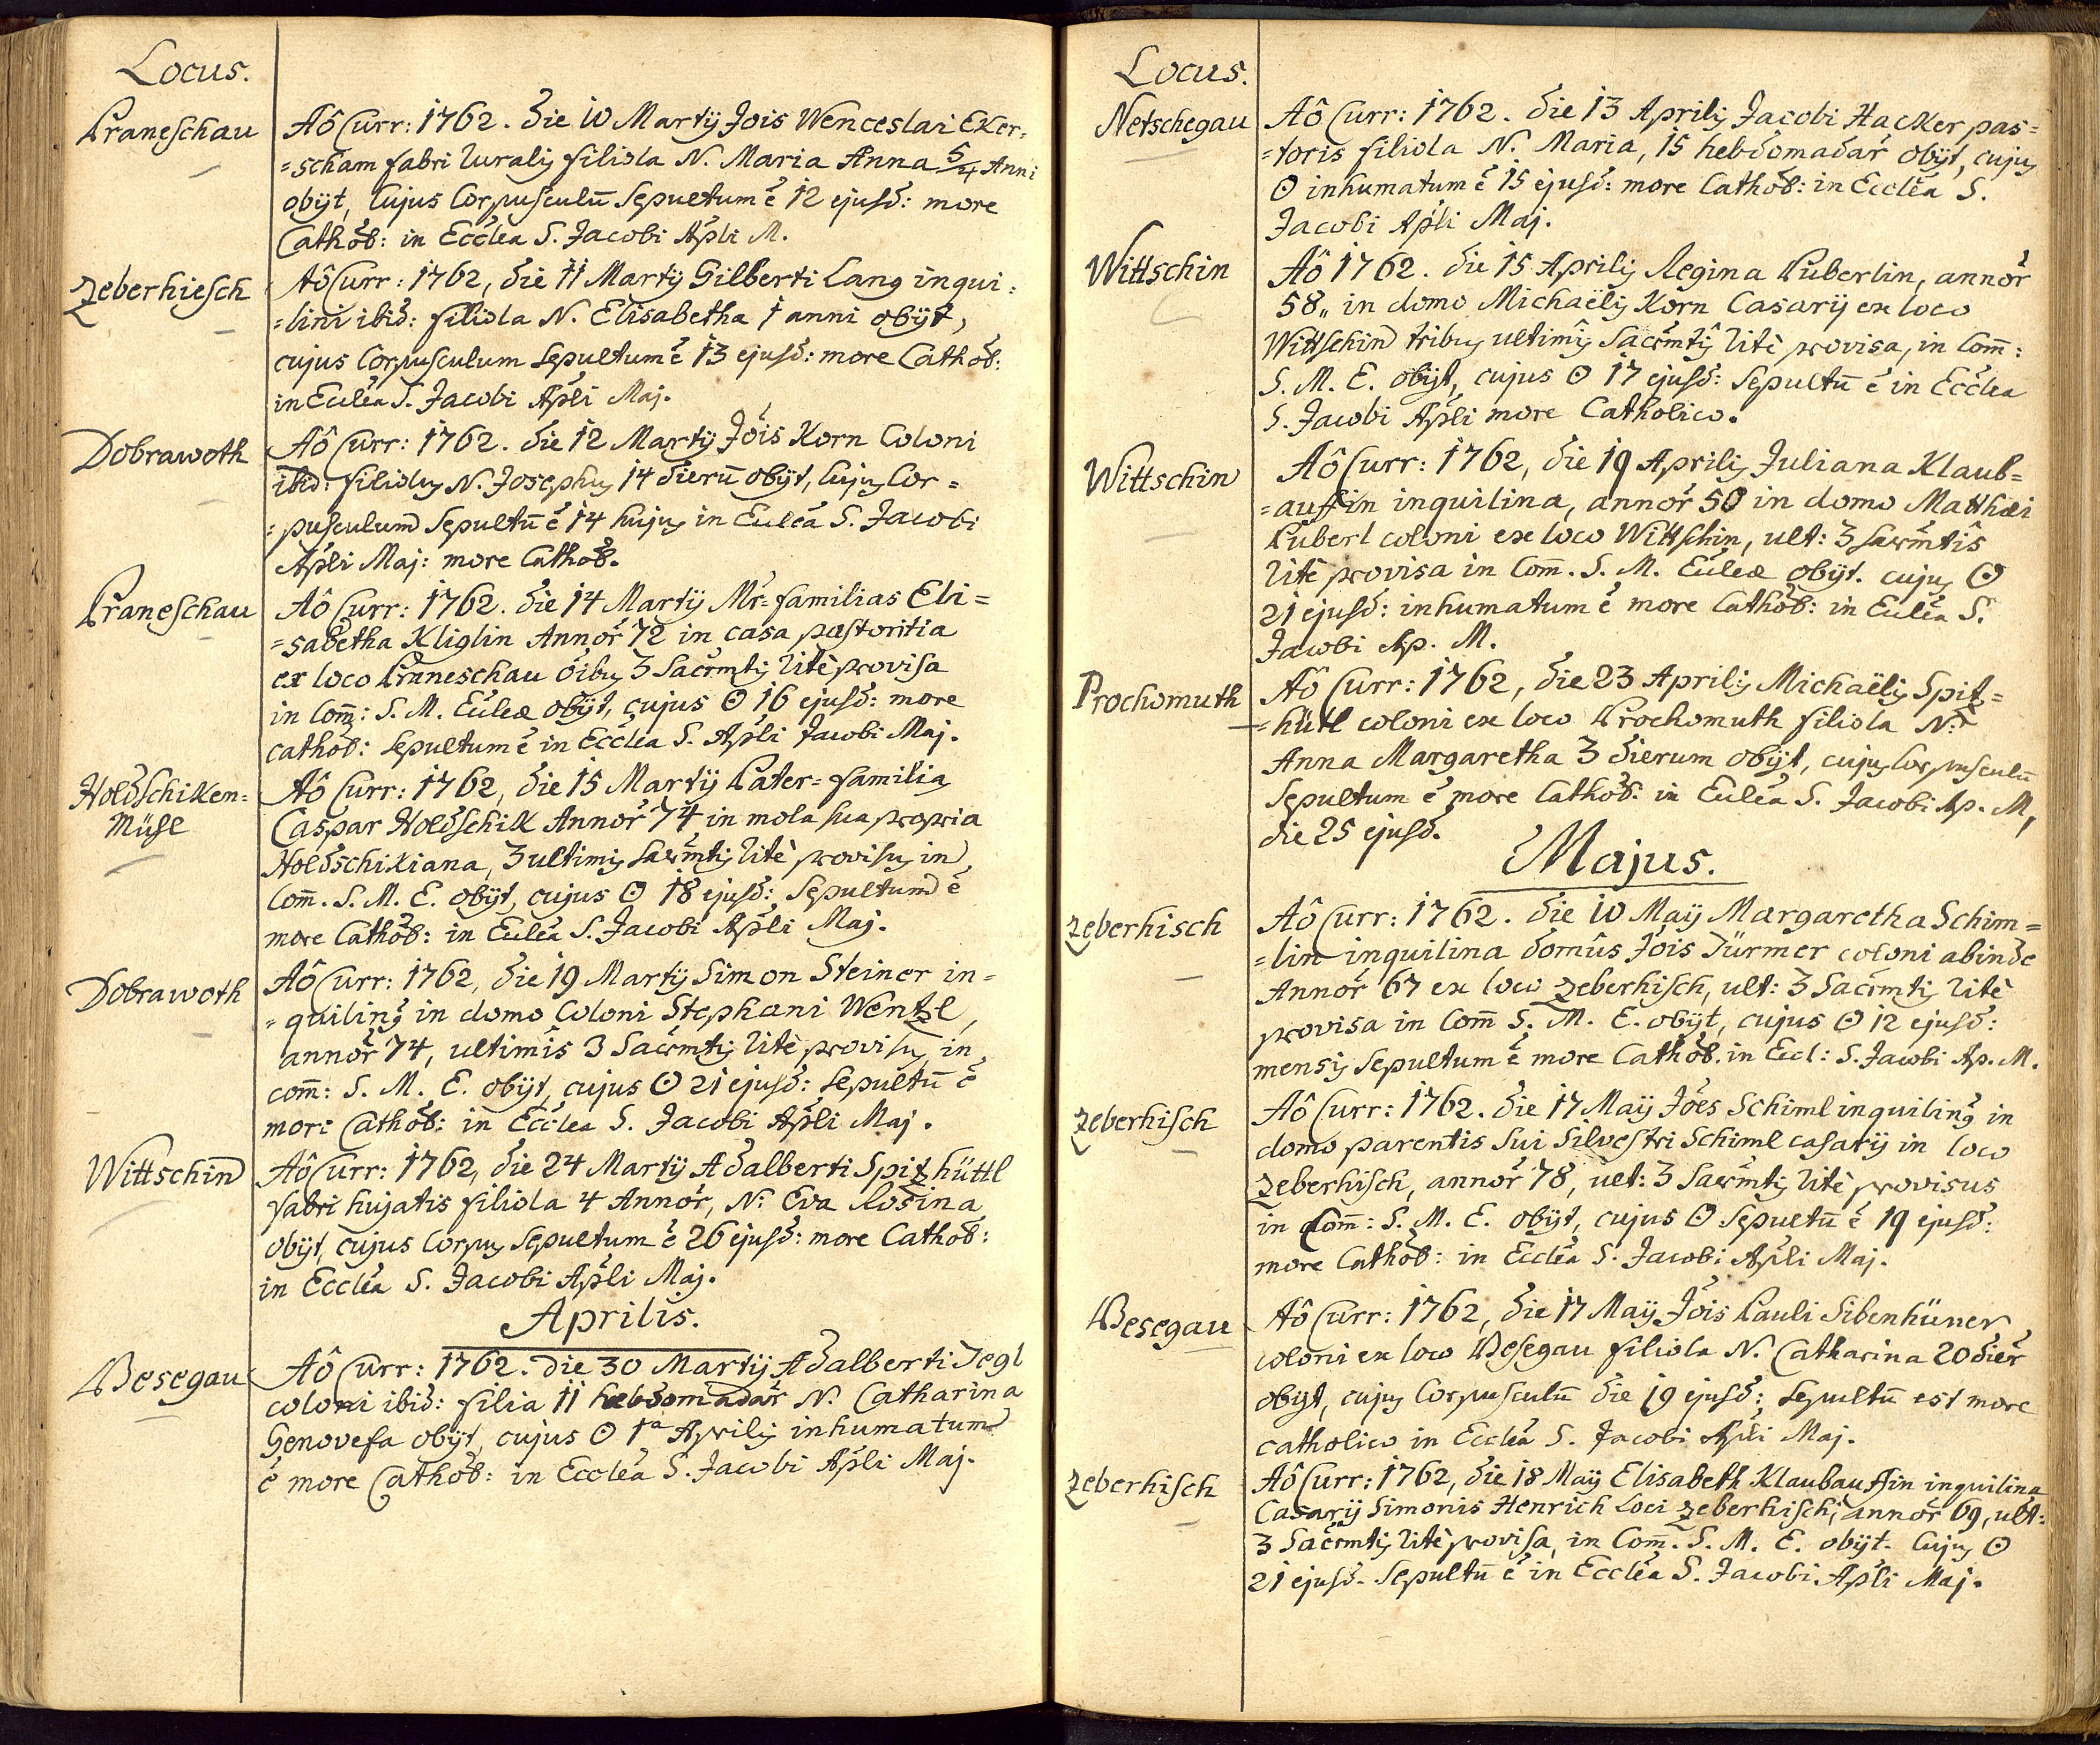 Locus.
Praneschau
Aô Curr: 1762. die 10 Martÿ Jois Wenceslai Eker=
=scham fabri Ruralis filiola N. Maria Anna 5/4 Anni
obÿt, Cujus Corpusculu̅ Sepultum ê 12 ejusd: more
Cathol: in Eccl̃a S. Jacobi Ap̃li M.
Zeberhiesch
Aô Curr: 1762, die 11 Martÿ Gilberti Lang inqui:
=lini ibid: filiola N. Elisabetha 1 anni obÿt,
cujus Corpusculum Sepultum ê 13 ejusd: more Cathol:
in Eccl̃a S. Jacobi Ap̃li Maj.
Dobrawoth
Aô Curr: 1762. die 12 Martÿ Jois Korn Coloni
ibid: filiolus N. Josephus 14 dieru̅ obÿt, cujus Cor=
=pusculum Sepultu̅ ê 14 hujus in Eccl̃a S. Jacobi
Ap̃li Maj: more Cathol.
Praneschau
Aô Curr: 1762. die 14 Martÿ Mr=familias Eli=
=sabetha Kliglin Annor̃ 72 in casa pastoritia
ex loco Praneschau oibus 3 Sacr̃mtis ritè provisa
in Com̅: S. M. Eccl̃æ obÿt, cujus ⊙ 16 ejusd: more
cathol: Sepultum ê in Eccl̃a S. Ap̃li Jacobi Maj.
Holdschiken=
Mühl
Aô Curr: 1762, die 15 Martÿ Pater=familias
Caspar Holdschik Annor̃ 74 in mola sua propria
Holdschikiana, 3 ultimis Sacr̃mtis ritè provisus in
Com̅. S. M. E. obÿt, cujus ⊙ 18 ejusd: Sepultum ê
more Cathol: in Eccl̃a S. Jacobi Ap̃li Maj.
Dobrawoth
Aô Curr: 1762, die 19 Martÿ Simon Steiner in=
=quilinus in domo Coloni Stephani Wentzl,
annor̃ 74, ultimis 3 Sacr̃mtis ritè provisus in
com̅: S. M. E. obÿt, cujus ⊙ 21 ejusd: Sepultu̅ ê
more Cathol: in Eccl̃a S. Jacobi Ap̃li Maj.
Wittschin
Aô Curr: 1762, die 24 Martÿ Adalberti Spitzhüttl
fabri hujatis filiola 4 Annor̃, N: Eva Rosina
obÿt, cujus Corpus Sepultum ê 26 ejusd: more Cathol:
in Eccl̃a S. Jacobi Ap̃li Maj.
Aprilis.
Besegau
Aô Curr: 1762. die 30 Martÿ Adalberti Jegl
coloni ibid: filia 11 hebdomadar̃ N. Catharina
Genovefa obÿt, cujus ⊙ 1ª Aprilis inhumatum
ê more Cathol: in Eccl̃a S. Jacobi Ap̃li Maj.
Locus.
Netschegau
Aô Curr: 1762. die 13 Aprilis Jacobi Hacker pas=
=toris filiola N. Maria, 15 hebdomadar̃ obÿt, cujus
⊙ inhumatum ê 15 ejusd: more Cathol: in Eccl̃a S.
Jacobi Ap̃li Maj.
Wittschin
Aô 1762. die 15 Aprilis Regina Puberlin, annor̃
58„ in domo Michaëlis Korn Casarÿ ex loco
Wittschin tribus ultimis Sacr̃mtis ritè provisa, in Com̅:
S. M. E. obÿt, cujus ⊙ 17 ejusd: Sepultu̅ ê in Eccl̃a
S. Jacobi Ap̃li more Catholico.
Wittschin
Aô Curr: 1762, die 19 Aprilis Juliana Klaub=
=auffin inquilina, annor̃ 50 in domo Matthæi
Puberl coloni ex loco Wittschin, ult: 3 Sacr̃mtîs
ritè provisa in Com̅. S. M. Eccl̃æ obÿt. cujus ⊙
21 ejusd: inhumatum ê more Cathol: in Eccl̃a S.
Jacobi Ap. M.
Prochomuth
Aô Curr: 1762, die 23 Aprilis Michaëlis Spitz=
=hütl coloni ex loco Prochomuth filiola N:
Anna Margaretha 3 dierum obÿt, cujus Corpusculu̅
Sepultum ê more Cathol: in Eccl̃a S. Jacobi Ap. M,
die 25 ejusd.
Majus.
Zeberhisch
Aô Curr: 1762. die 10 Maÿ Margaretha Schim=
=lin inquilina domûs Jois Türmer coloni abinde
Annor̃ 67 ex loco Zeberhisch, ult: 3 Sacr̃mtis ritè
provisa in Com̅ S. M. E. obÿt, cujus ⊙ 12 ejusd:
mensis Sepultum ê more Cathol. in Eccl: S. Jacobi Ap. M.
Zeberhisch
Aô Curr: 1762. die 17 Maÿ Joes Schiml inquilinus in
domo parentis sui Silvestri Schiml casarÿ in loco
Zeberhisch, annor̃ 78, ult: 3 Sacr̃mtis ritè provisus
in Com̅: S. M. E. obÿt, cujus ⊙ Sepultu̅ ê 19 ejusd:
more Cathol: in Eccl̃a S. Jacobi Ap̃li Maj.
Besegau
Aô Curr: 1762, die 17 Maÿ Jois Pauli Sibenhüner
coloni ex loco Besegau filiola N. Catharina 20 dier̃
obÿt, cujus Corpusculu̅ die 19 ejusd: Sepultu̅ est more
catholico in Eccl̃a S. Jacobi Ap̃li Maj.
Zeberhisch
Aô Curr: 1762, die 18 Maÿ Elisabeth Klaubauffin inquilina
Casarÿ Simonis Henrich Loci Zeberhisch, annor̃ 69, ult:
3 Sacr̃mtis ritè provisa, in Com̅. S. M. E. obÿt. Cujus ⊙
21 ejusd. Sepultu̅ ê in Eccl̃a S. Jacobi Ap̃li Maj.